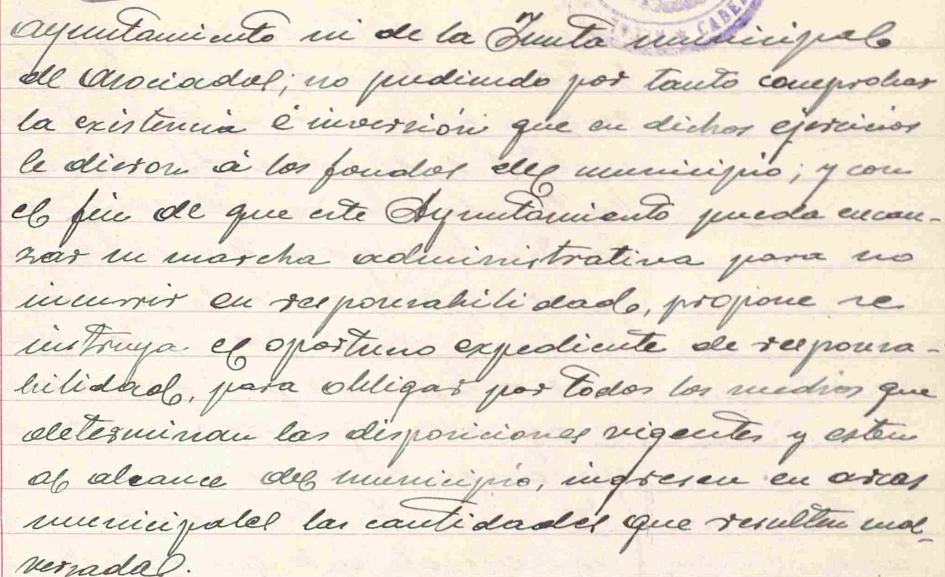 Ayuntamiento ni de la Junta municipal
de Asociados; no pudiendo por tanto comprobar
la existencia é inversión que en dichos ejercicios
le dieron á los fondos del municipio; y con
el fin de que este Ayuntamiento pueda encau-
zar su marcha administrativa para no
incurrir en responsabilidad, propone se
instruya el oportuno expediente de responsa-
bilidad, para obligar por todos los medios que
determinan las disposiciones vigentes y esten
al alcance del municipio, ingresen en arcas
municipales las cantidades que resulten mal-
versadas.